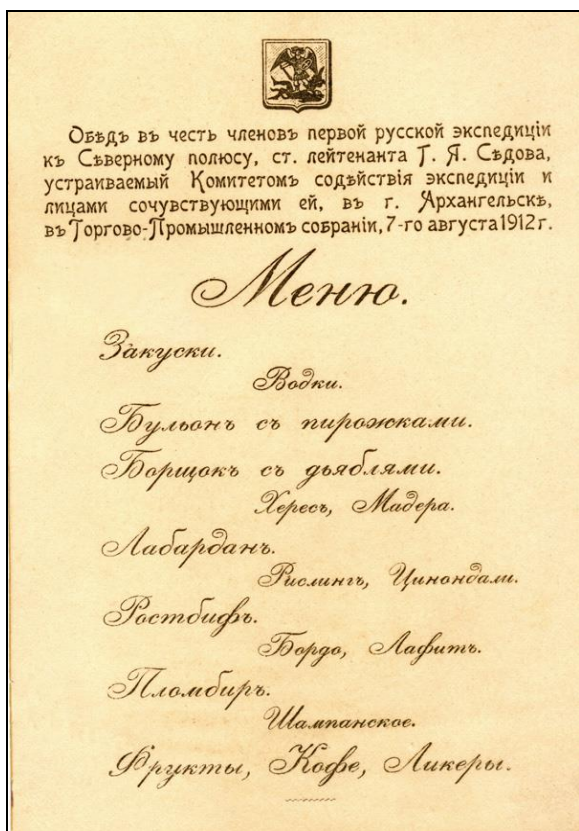 Обѣдъ въ честь членовъ первой русской экспедиціи
къ Сѣверному полюсу, ст. лейтенанта Г. Я. Сѣдова,
устраиваемый Комитетомъ содѣйствія экспедиціи и
лицами сочувствующими ей, въ г. Архангельскѣ,
въ Торгово-Промышленномъ собраніи, 7-го августа 1912 г.
Меню.
Закуски.
Водки.
Бульонъ съ пирожками.
Борщокъ съ дьяблями.
Хересъ, Мадера.
Лабарданъ.
Рислингъ, Цинондали.
Ростбифъ.
Бордо, Лафитъ.
Пломбиръ.
Шампанское.
Фрукты, Кофе, Ликеры.